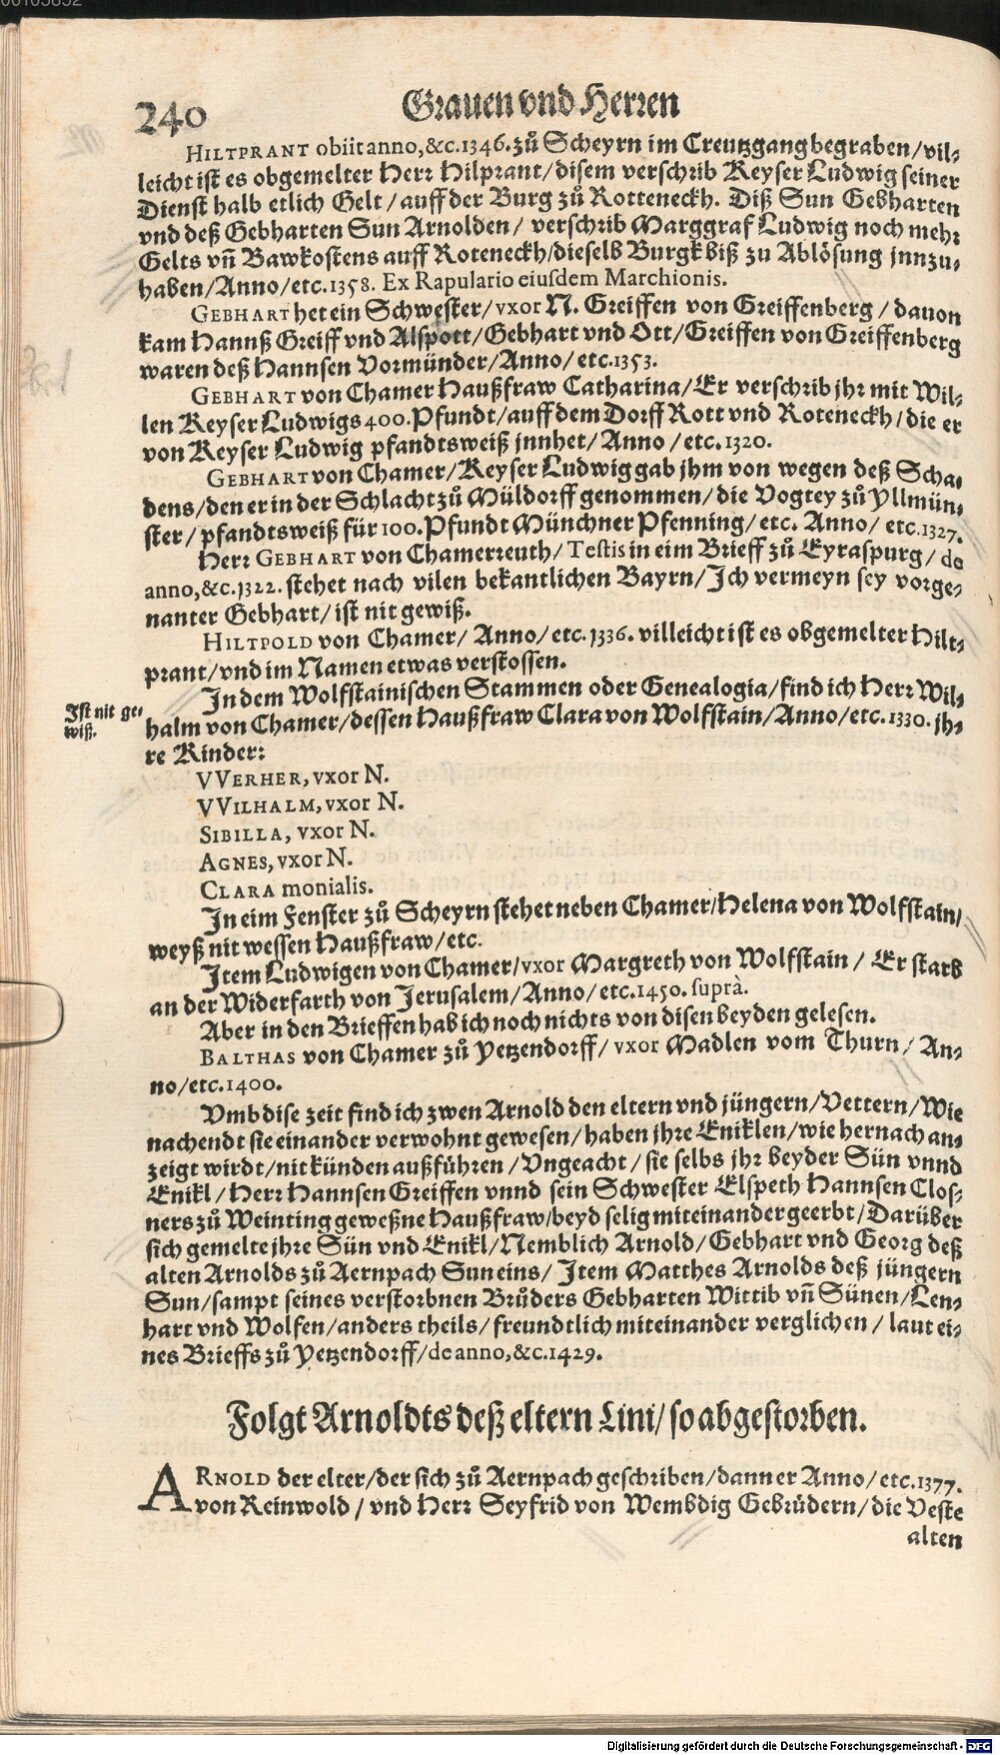 240
Grauen vnd Herren
HILTPRANT obiit anno, &c. 1346. zů Scheyrn im Creutzgang begraben / vil-
leicht ist es obgemelter Herr Hilprant / disem verschrib Keyser Ludwig seiner
Dienst halb etlich Gelt / auff der Burg zů Rotteneckh. Diß Sun Gebharten
vnd deß Gebharten Sun Arnolden / verschrib Marggraf Ludwig noch mehr
Gelts vñ Bawkostens auff Roteneckh / dieselb Burgk biß zu Ablösung jnnzu-
haben / Anno / etc. 1358. Ex Rapulario eiusdem Marchionis.
GEBHART het ein Schwester / vxor N. Greiffen von Greiffenberg / dauon
kam Hannß Greiff vnd Alspott / Gebhart vnd Ott / Greiffen von Greiffenberg
waren deß Hannsen Vormünder / Anno / etc. 1353.
GEBHART von Chamer Haußfraw Catharina / Er verschrib jhr mit Wil-
len Keyser Ludwigs 400. Pfundt / auff dem Dorff Rott vnd Roteneckh / die er
von Keyser Ludwig pfandtsweiß jnnhet / Anno / etc. 1320.
GEBHART von Chamer / Keyser Ludwig gab jhm von wegen deß Scha-
dens / den er in der Schlacht zů Müldorff genommen / die Vogtey zů Yllmün-
ster / pfandtsweiß für 100. Pfundt Münchner Pfenning / etc. Anno / etc. 1327.
Herr GEBHART von Chamerreuth / Testis in eim Brieff zů Eyraspurg / de
anno, &c. 1322. stehet nach vilen bekantlichen Bayrn / Ich vermeyn sey vorge-
nanter Gebhart / ist nit gewiß.
HILTPOLD von Chamer / Anno / etc. 1336. villeicht ist es obgemelter Hilt-
prant / vnd im Namen etwas verstossen.
In dem Wolfstainischen Stammen oder Genealogia / find ich Herr Wil-
Ist nit ge-
wiß.
halm von Chamer / dessen Haußfraw Clara von Wolfstain / Anno / etc. 1330. jh-
re Kinder:
VVERHER, vxor N.
VVILHALM, vxor N.
SIBILLA, vxor N.
AGNES, vxor N.
CLARA monialis.
In eim Fenster zů Scheyrn stehet neben Chamer / Helena von Wolfstain /
weyß nit wessen Haußfraw / etc.
Item Ludwigen von Chamer / vxor Margreth von Wolfstain / Er starb
an der Widerfarth von Jerusalem / Anno / etc. 1450. suprà.
Aber in den Brieffen hab ich noch nichts von disen beyden gelesen.
BALTHAS von Chamer zů Yetzendorff / vxor Madlen vom Thurn / An-
no / etc. 1400.
Vmb dise zeit find ich zwen Arnold den eltern vnd jüngern / Vettern / Wie
nachendt sie einander verwohnt gewesen / haben jhre Eniklen / wie hernach an-
zeigt wirdt / nit künden außführen / Vngeacht / sie selbs jhr beyder Sün vnnd
Enikl / Herr Hannsen Greiffen vnnd sein Schwester Elspeth Hannsen Clos-
ners zů Weinting geweßne Haußfraw / beyd selig miteinander geerbt / Darüber
sich gemelte jhre Sün vnd Enikl / Nemblich Arnold / Gebhart vnd Georg deß
alten Arnolds zů Aernpach Sun eins / Item Matthes Arnolds deß jüngern
Sun / sampt seines verstorbnen Brůders Gebharten Wittib vñ Sünen / Len-
hart vnd Wolfen / anders theils / freundtlich miteinander verglichen / laut ei-
nes Brieffs zů Yetzendorff / de anno, &c. 1429.
Folgt Arnoldts deß eltern Lini / so abgestorben.
ARNOLD der elter / der sich zů Aernpach geschriben / dann er Anno / etc. 1377.
von Reinwold / vnd Herr Seyfrid von Wembdig Gebrüdern / die Veste
alten
Digitalisierung gefördert durch die Deutsche Forschungsgemeinschaft - DFG